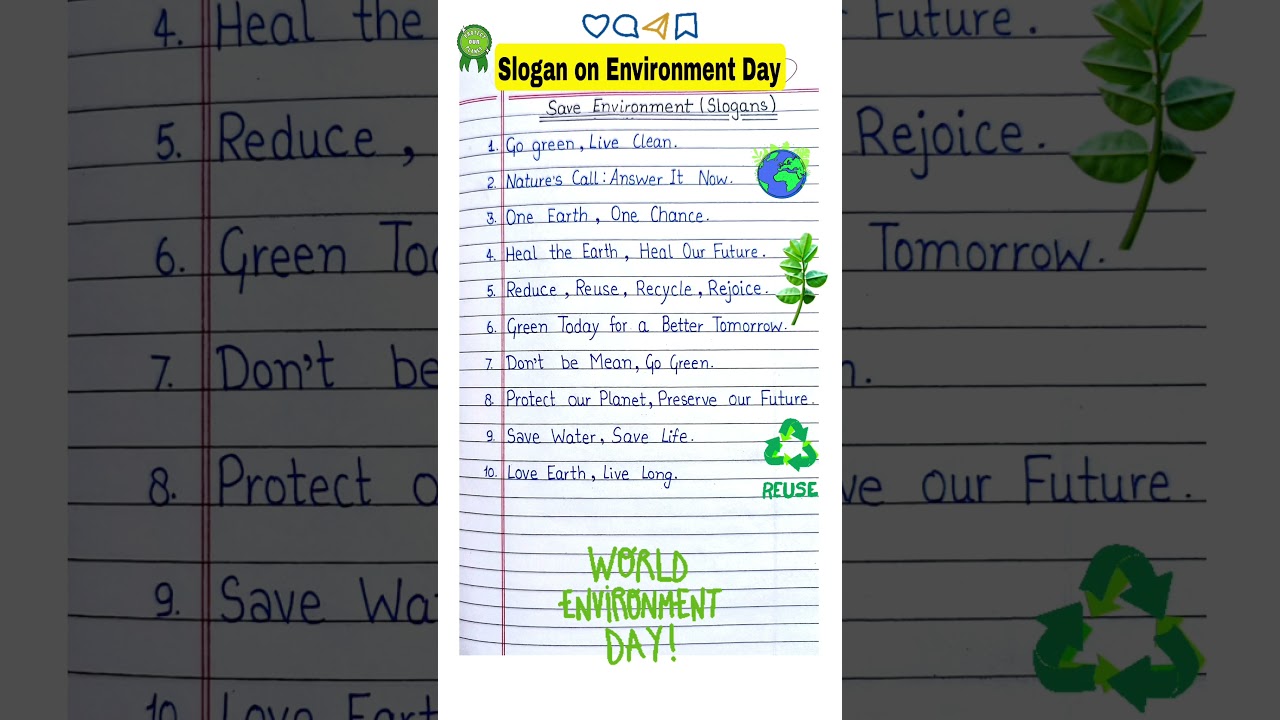 PROTECT OUR PLANET
Slogan on Environment Day
Save Environment (Slogans)
1. Go green, Live Clean.
2. Nature's Call: Answer It Now.
3. One Earth, One Chance.
4. Heal the Earth, Heal Our Future.
5. Reduce, Reuse, Recycle, Rejoice.
6. Green Today for a Better Tomorrow.
7. Don't be Mean, Go Green.
8. Protect our Planet, Preserve our Future.
9. Save Water, Save Life.
10. Love Earth, Live Long.
REUSE
WORLD
ENVIRONMENT
DAY!
4. Heal the
5. Reduce,
6. Green To
7. Don't be
8. Protect o
9. Save Wa
10 Love Eart
Future.
Rejoice.
Tomorrow.
n.
ve our Future.